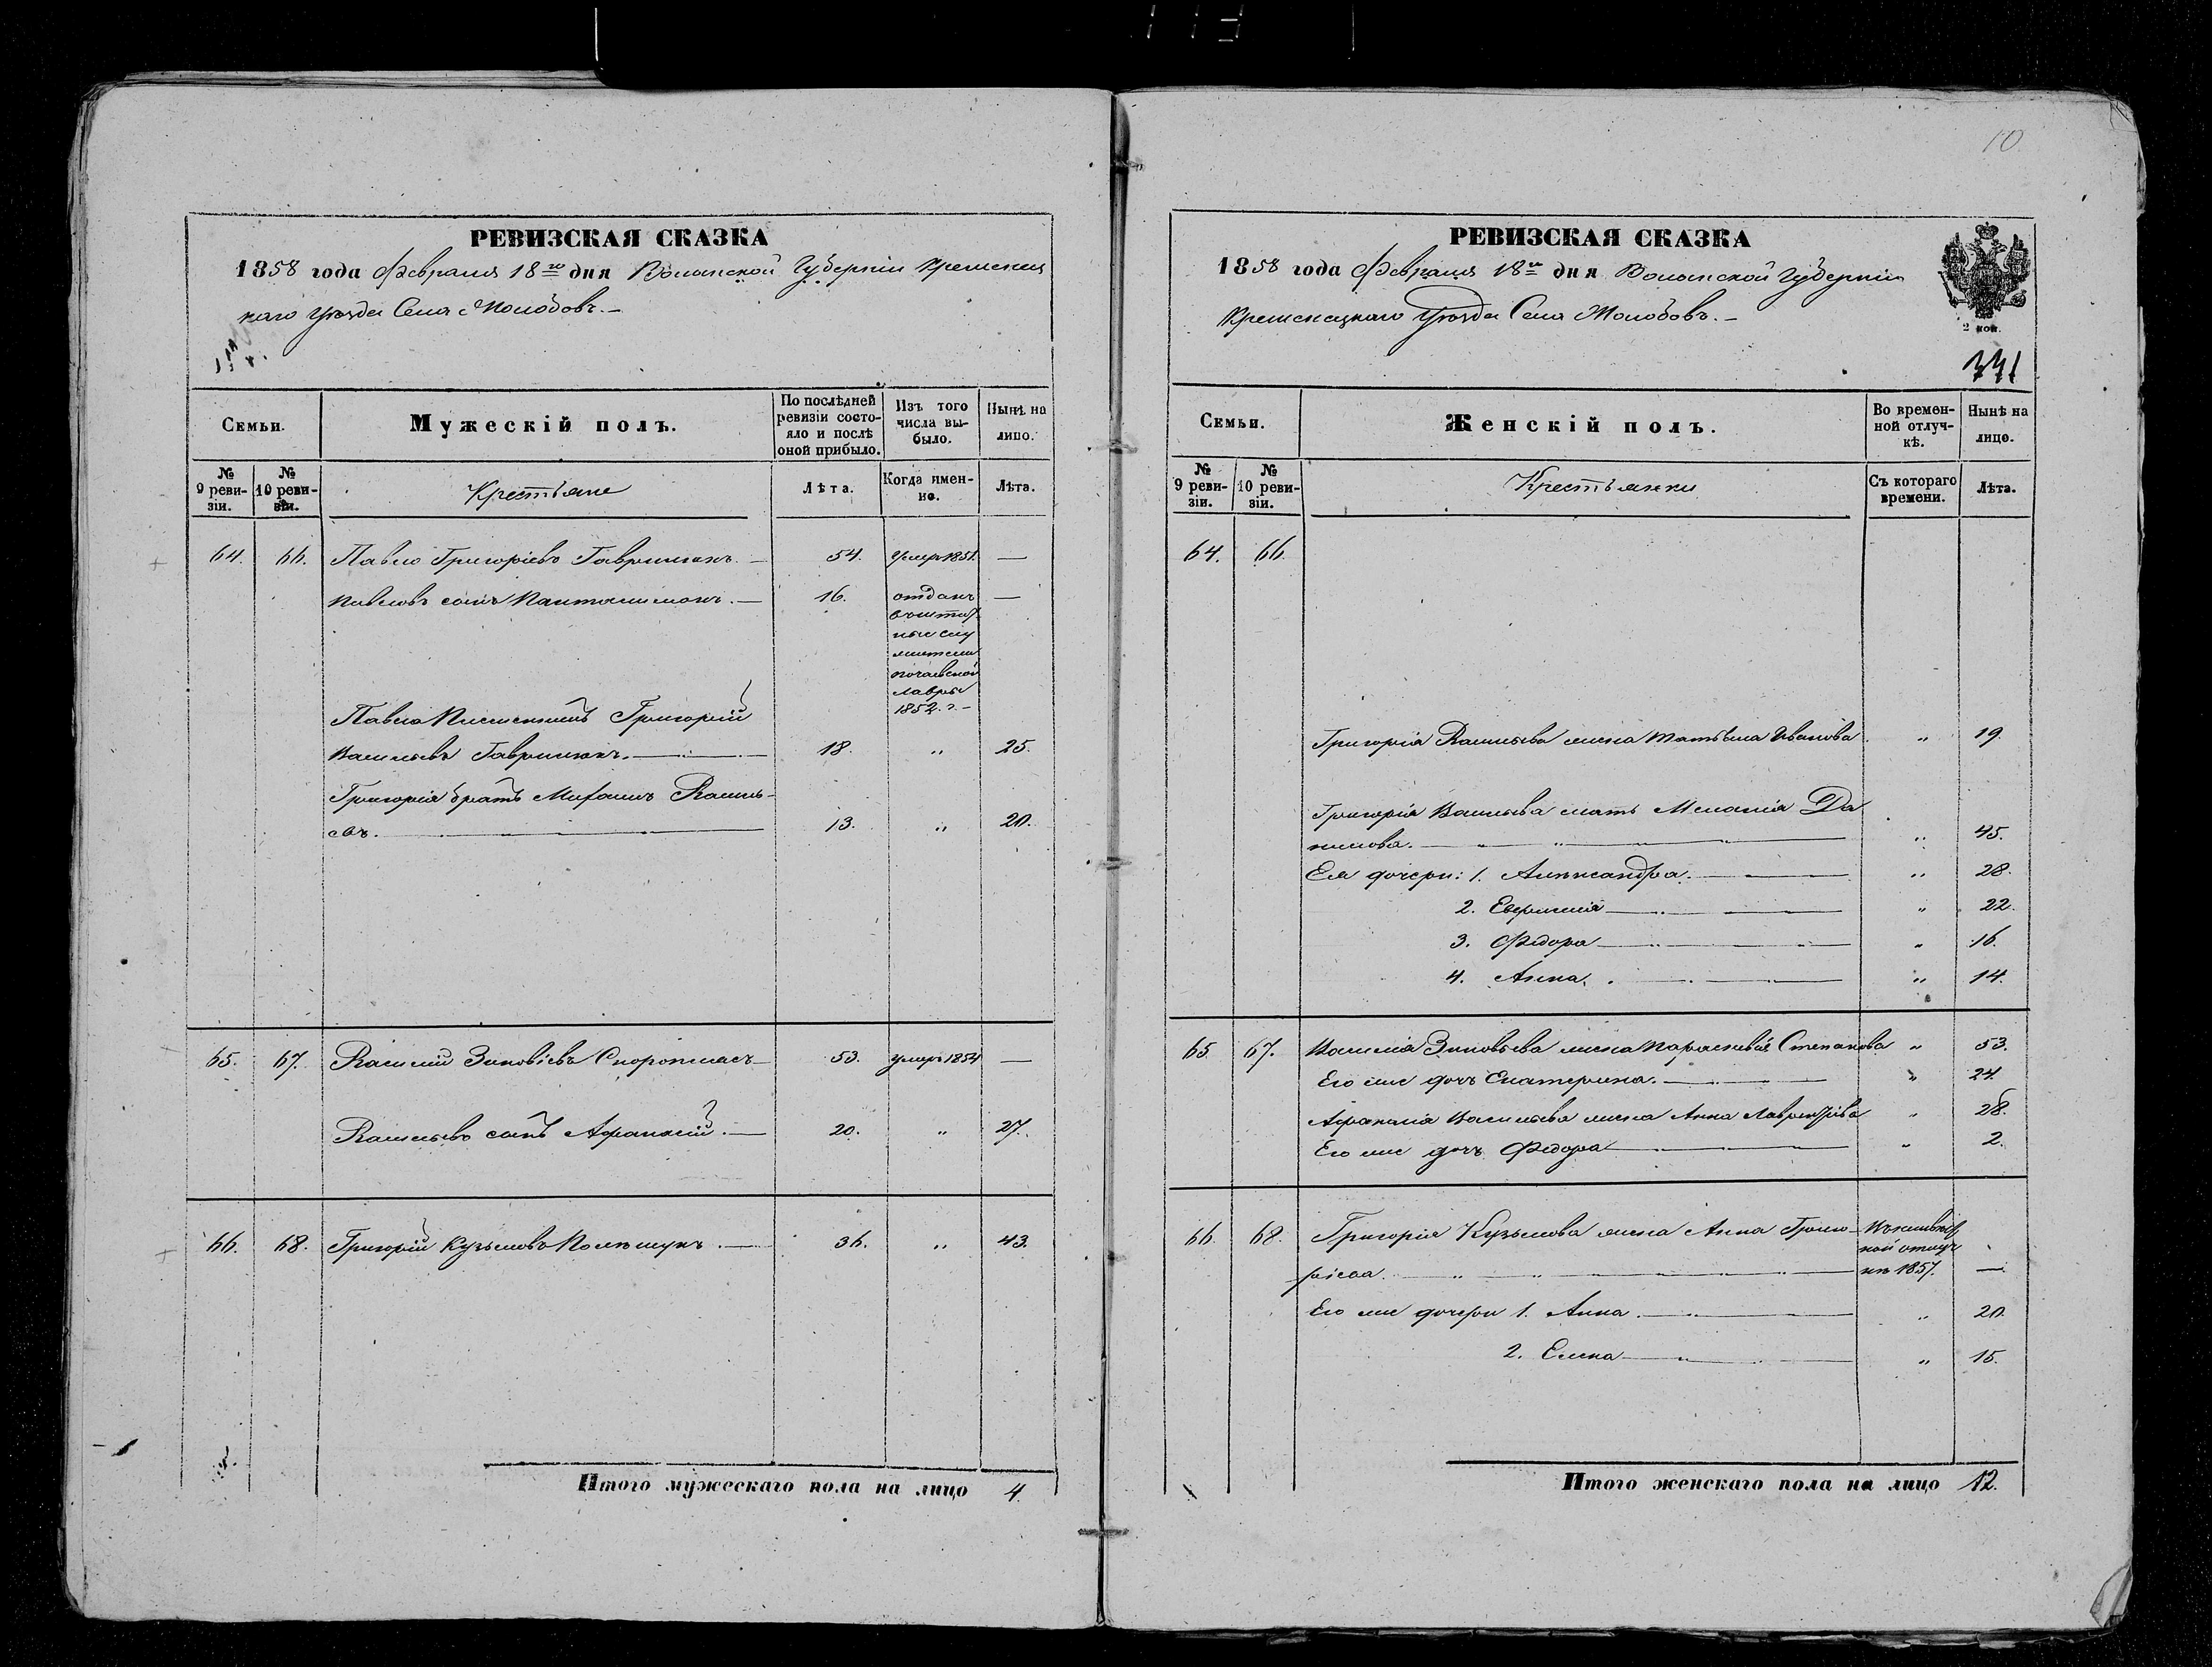 10
РЕВИЗСКАЯ СКАЗКА
1858 года Февраля 18го дня Волынской Губерніи Кременец
каго Уезда Села Молодовъ.-
Семьи.
Мужескій полъ.
По послѣдней ревизіи состояло и послѣ оной прибыло.
Изъ того числа выбыло.
Нынѣ на лицо.
№ 9 ревизіи.
№ 10 ревизіи.
Крестьяне
Лѣта.
Когда именно.
Лѣта.
64. 66. Павло Григоріевъ Гаврилюкъ. — 54. умеръ 1851. —
Павловъ сынъ Пантелимонъ. — 16. отданъ —
въ штат
ные слу
жители
почаевской
лавры
1852. г. -
Павла Племянникъ Григорій
Васильевъ Гаврилюкъ. — 18. " 25.
Григорія братъ Михаилъ Василь-
евъ. — 13. " 20.
65. 67. Василій Зиновіевъ — 53. умеръ 1854 —
Васильевъ сынъ Афанасій. — 20. " 27.
66. 68. Григорій Кузьмовъ Полещукъ. — 36. " 43.
Итого мужескаго пола на лицо 4.
РЕВИЗСКАЯ СКАЗКА
1858 года Февраля 18го дня Волынской Губерніи
Кременецкаго Уезда Села Молодовъ. -
2 коп.
331
Семьи.
Женскій полъ.
Во временной отлучкѣ.
Нынѣ на лицо.
№ 9 ревизіи.
№ 10 ревизіи.
Крестьянки
Съ котораго времени.
Лѣта.
64. 66.
Григорія Васильева жена Татьяна Иванова " 19.
Григорія Васильева мать Меланія Да
нилова. — " 45.
Ея дочери: 1. Александра. — " 28.
2. — " 22.
3. Федора — " 16.
4. Анна. — " 14.
65. 67. Василія Зиновьева жена Параскевія Степанова " 53.
Его же дочь Екатерина. — " 24.
Афанасія Васильева жена Анна " 28.
Его же дочь Федора — " 2.
66. 68. Григорія Кузьмова жена Анна Григо-
ріева. — 1857. —
Его же дочери 1. Анна. — " 20.
2. Елена — " 15.
Итого женскаго пола на лицо 12.